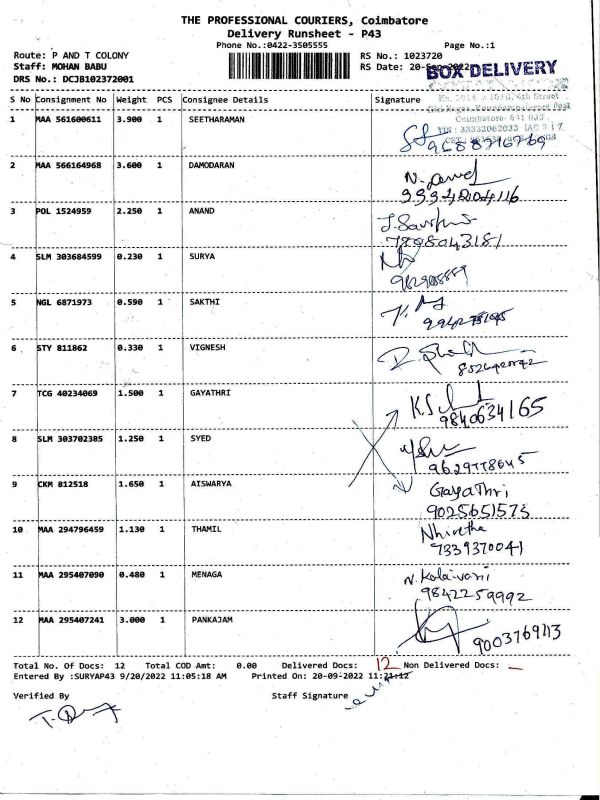 THE PROFESSIONAL COURIERS, Coimbatore
Delivery Runsheet - P43
Phone No.:0422-3505555 Page No.:1
Route: P AND T COLONY RS No.: 1023720
Staff: MOHAN BABU RS Date: 20-Sep-2022
BOX DELIVERY
DRS No.: DCJB102372001
S No Consignment No Weight PCS Consignee Details Signature
Coimbatore 641 033
1 MAA 561600611 3.900 1 SEETHARAMAN
2 MAA 566164968 3.600 1 DAMODARAN
3 POL 1524959 2.250 1 ANAND
7898043181
4 SLM 303684599 0.230 1 SURYA
5 NGL 6871973 0.590 1 SAKTHI
6 STY 811862 0.330 1 VIGNESH
7 TCG 40234069 1.500 1 GAYATHRI
9840634165
8 SLM 303702385 1.250 1 SYED
9629778645
9 CKM 812518 1.650 1 AISWARYA Gayathri
9025651573
10 MAA 294796459 1.130 1 THAMIL Nhivetha
7339370041
11 MAA 295407090 0.480 1 MENAGA N. Kalaivani
9842259992
12 MAA 295407241 3.000 1 PANKAJAM
9003769113
Total No. Of Docs: 12 Total COD Amt: 0.00 Delivered Docs: 12 Non Delivered Docs: —
Entered By :SURYAP43 9/20/2022 11:05:18 AM Printed On: 20-09-2022 11:21:12
Verified By Staff Signature